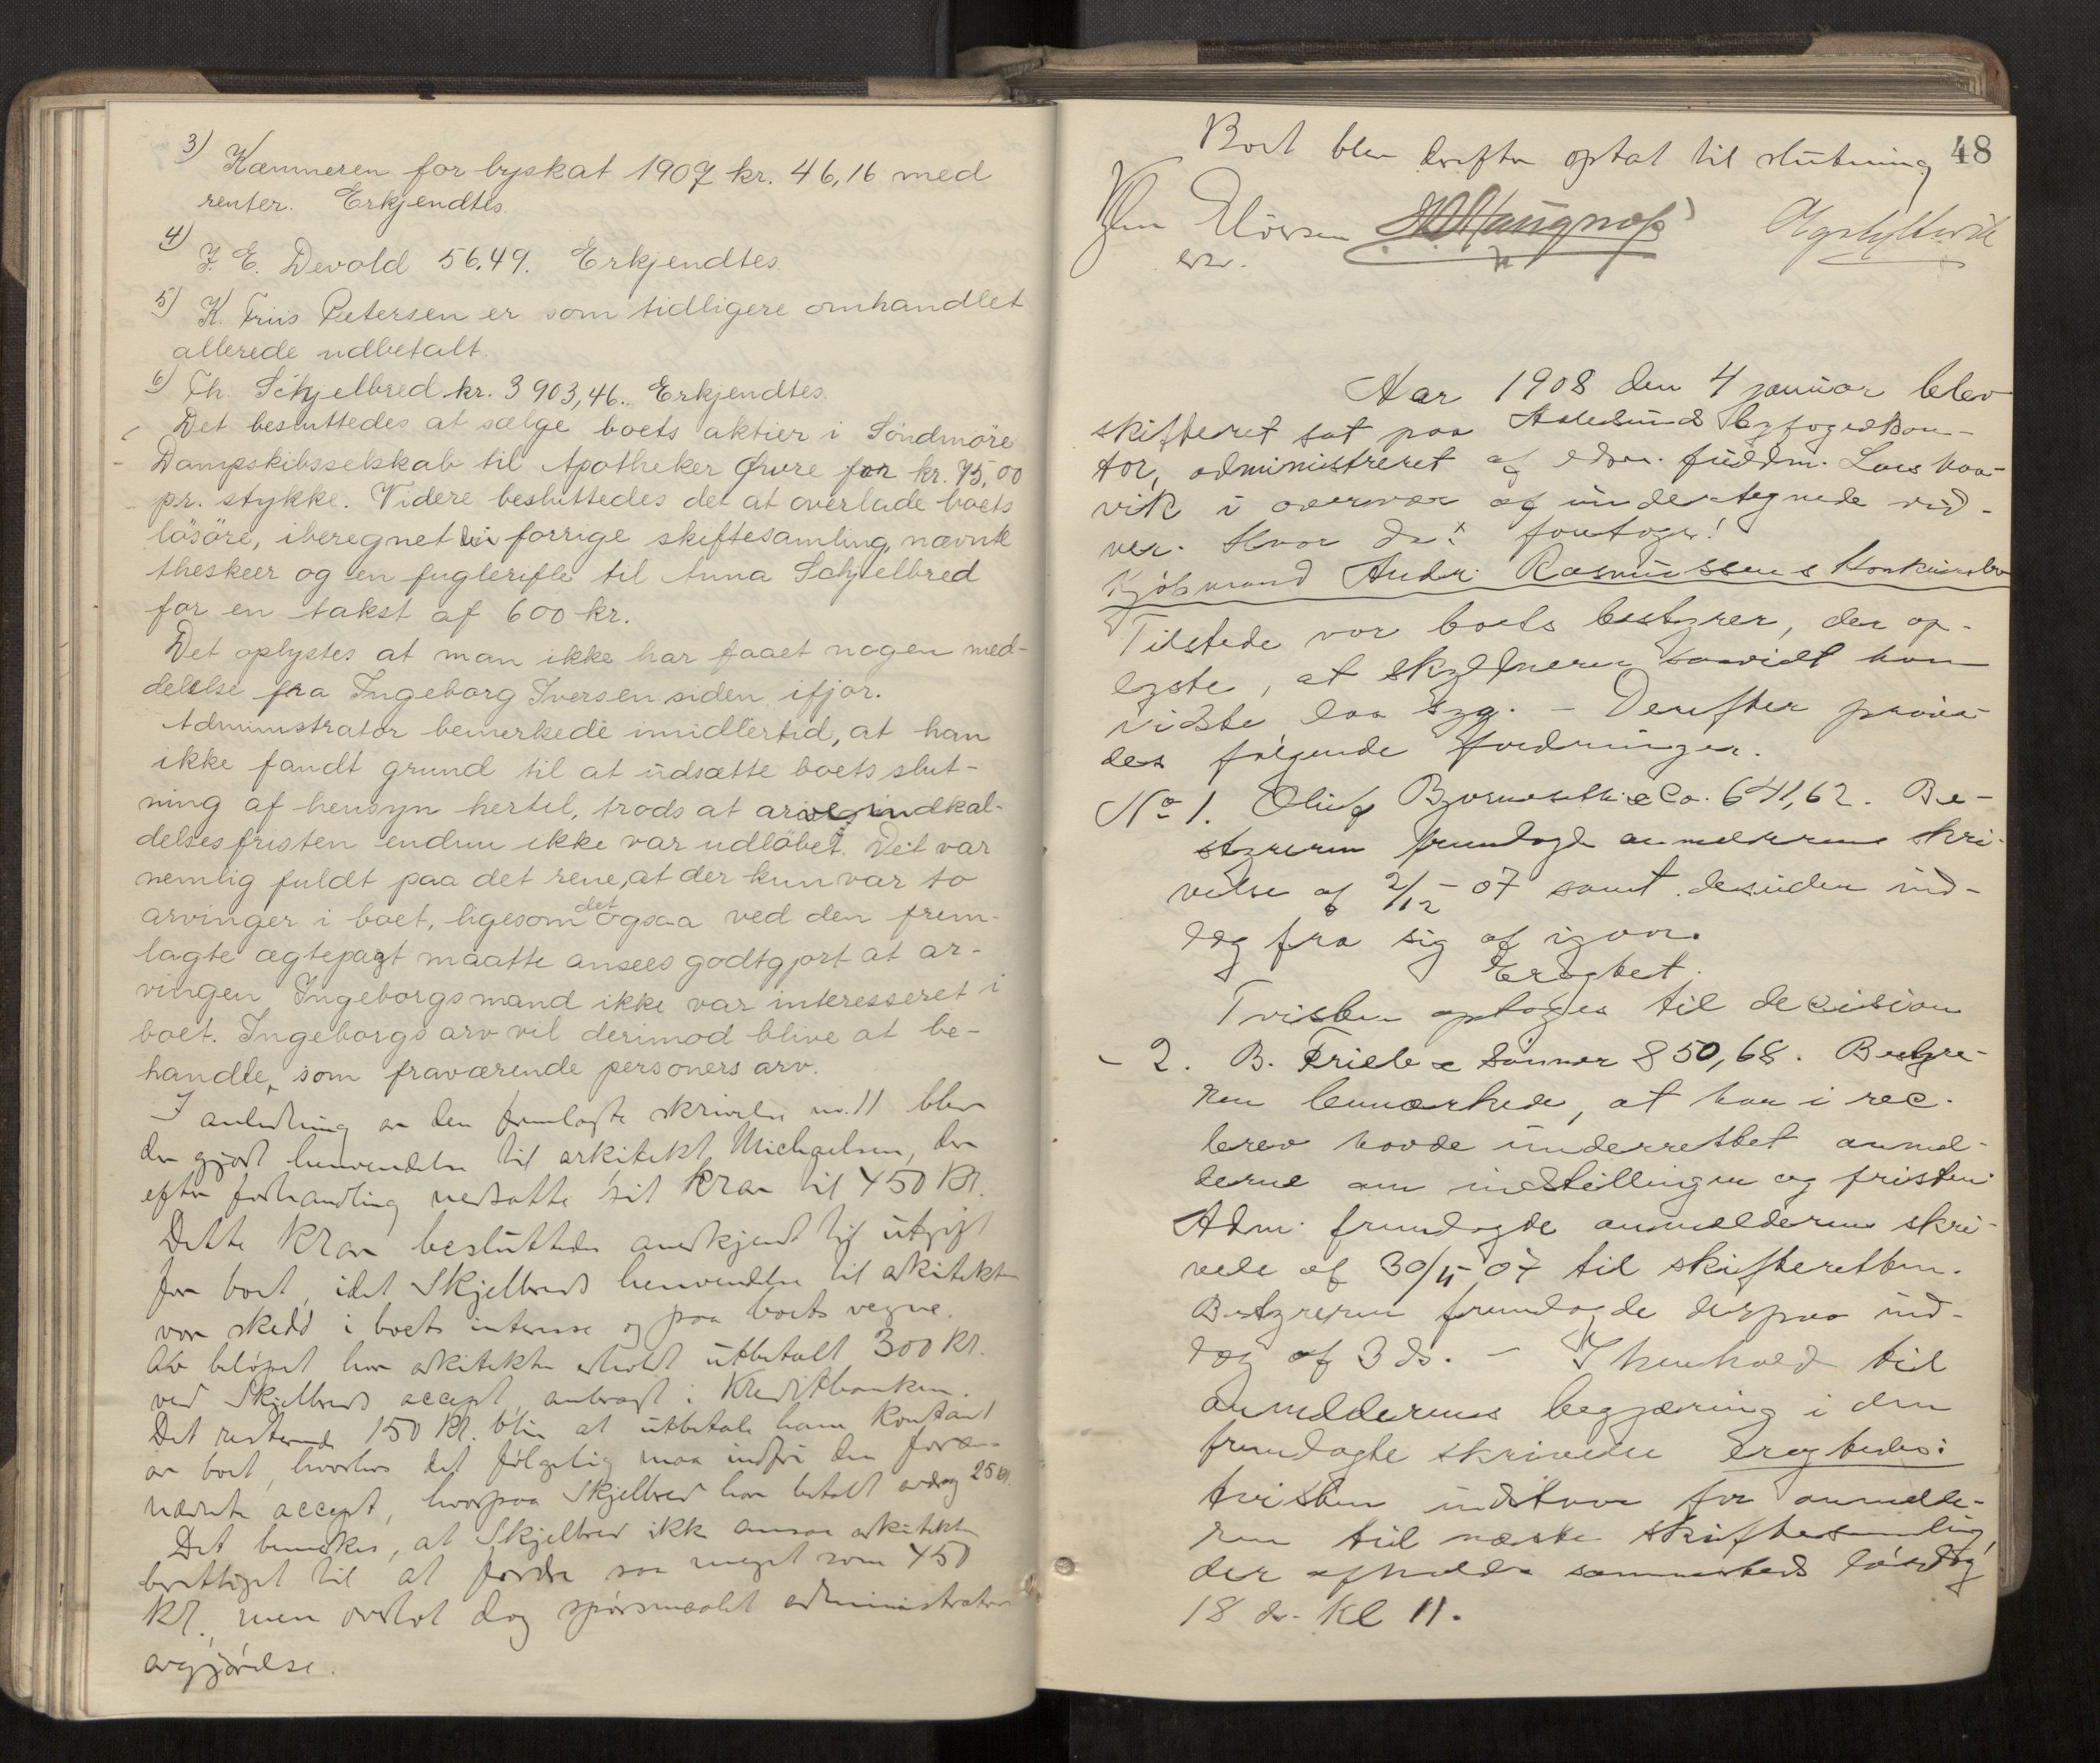 3) Kæmneren for byskat 1907 kr. 46,16 med
renter. Erkjendtes.
4) J. E. Devold 56,49. Erkjendtes
5) K. Friis Petersen er som tidligere omhandlet
allerede udbetalt.
6) Th. Schjelbred kr. 3903,46. Erkjendtes.
Det besluttedes at sælge boets aktier i Söndmöre
Dampskibsselskab til Apotheker Øwre for kr. 75,00
pr. stykke. Videre besluttedes det at overlade boets
lösöre, iberegnet i forrige skiftesamling nævnte
theskeer og en fuglerifle til Anna Schjelbred
for en takst af 600 kr.
Det oplystes at man ikke har faaet nogen med-
delelse fra Ingeborg Iversen siden ifjor.
Administrator bemerkede imidlertid, at han
ikke fandt grund til at udsætte boets slut-
ning af hensyn hertil, trods at arveindkal-
delsesfristen endnu ikke var udlöbet. Det var
nemlig fuldt paa det rene, at der kun var to
arvinger i boet, ligesom det ogsaa ved den frem-
lagte ægtepagt maatte ansees godtgjort at ar-
vingen Ingeborgs mand ikke var interesseret i
boet. Ingeborgs arv vil derimod blive at be-
handle som fraværende personers arv.
I anledning av den fremlagte skrivelse nr. 11 blev
der gjort henvendelse til arkitekt Michaelsen, der
efter forhandling nedsatte sit krav til 450 kr.
Dette krav besluttedes anerkjendt til utgift
for boet, idet Skjelbreds henvendelse til arkitekten
var skedd i boets interesse og paa boets vegne.
Av belöpet har arkitekten erholdt utbetalt 300 kr.
ved Skjelbreds accept, anbragt i Kreditbanken.
Det resterende 150 kr. blir at utbetale ham kontant
av boet, hvorhos det fölgelig maa indfri den foran
nævnte accept, hvorpaa Skjelbred har betalt avdrag 25 kr.
Det bemerkes, at Skjelbred ikke ansaa arkitekten
berettiget til at fordre saa meget som 450
kr., men overlot dog spörsmaalet administrators
avgjörelse.
48
Boet blev derefter optat til slutning

Aar 1908 den 4 januar blev
skifteret sat paa Aalesunds byfogedkon-
tor, administreret af edsv. fuldm. Lars Haa-
vik i overvær af undertegnede vid-
ner. Hvor da: foretoges:
Kjöbmand Andr. Rasmussens Konkursbo
Tilstede var boets bestyrer, der op-
lyste, at skyldneren saavidt han
vidste laa syg. – Derefter prøve-
des følgende fordringer.
No 1. Oluf Bjørneseth & Co. 641,62. Be-
styreren fremlagde anmelderens skri-
velse af 2/12-07 samt desuden ind-
læg fra sig af igaar.
Eragtet:
Tvisten optages til decision
- 2. B. Friele & Sønner 850,68. Bestyre-
ren bemærkede, at han i rec.
brev havde underrettet anmel-
derne om indstillingen og fristen.
Adm. fremlagde anmelderens skri-
velse af 30/11 07 til skifteretten.
Bestyreren fremlagde derpaa ind-
læg af 3 ds. – I henhold til
anmelderens begjæring i den
fremlagte skrivelse eragtedes:
tvisten udstaar for anmelde-
ren til næste skiftesamling,
der afholdes sammesteds lørdag
18 ds. kl 11.